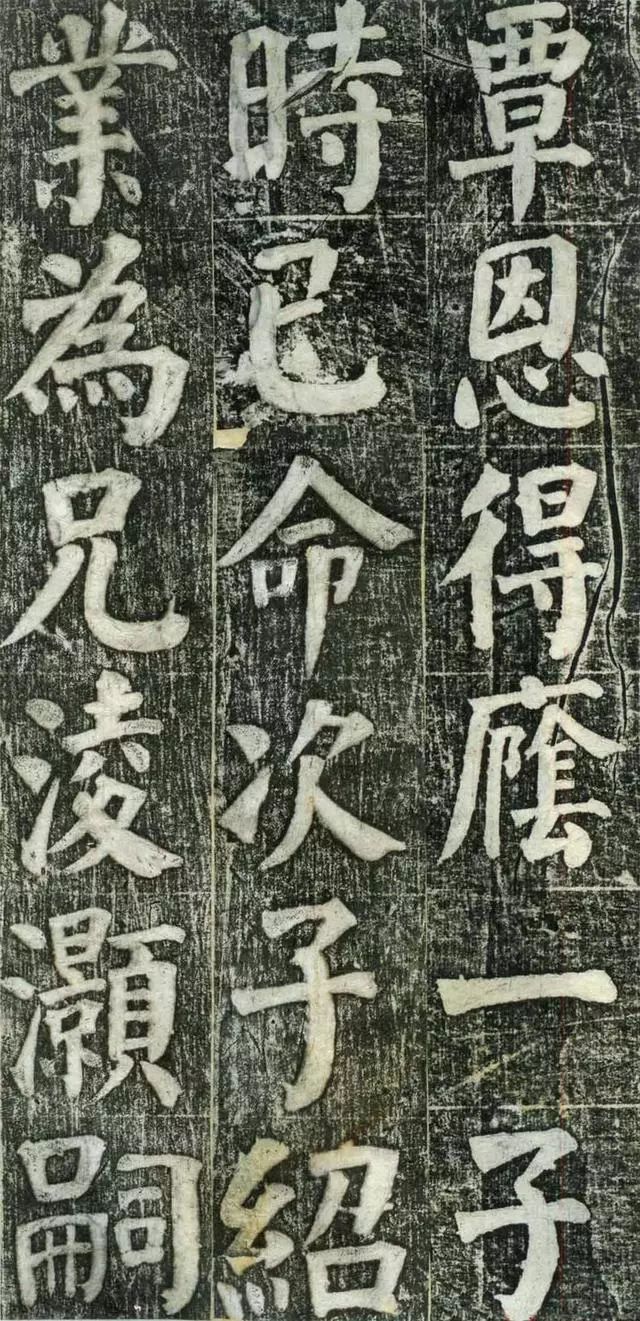 覃恩得廕一子
時已命次子紹
業為兄淩灝嗣